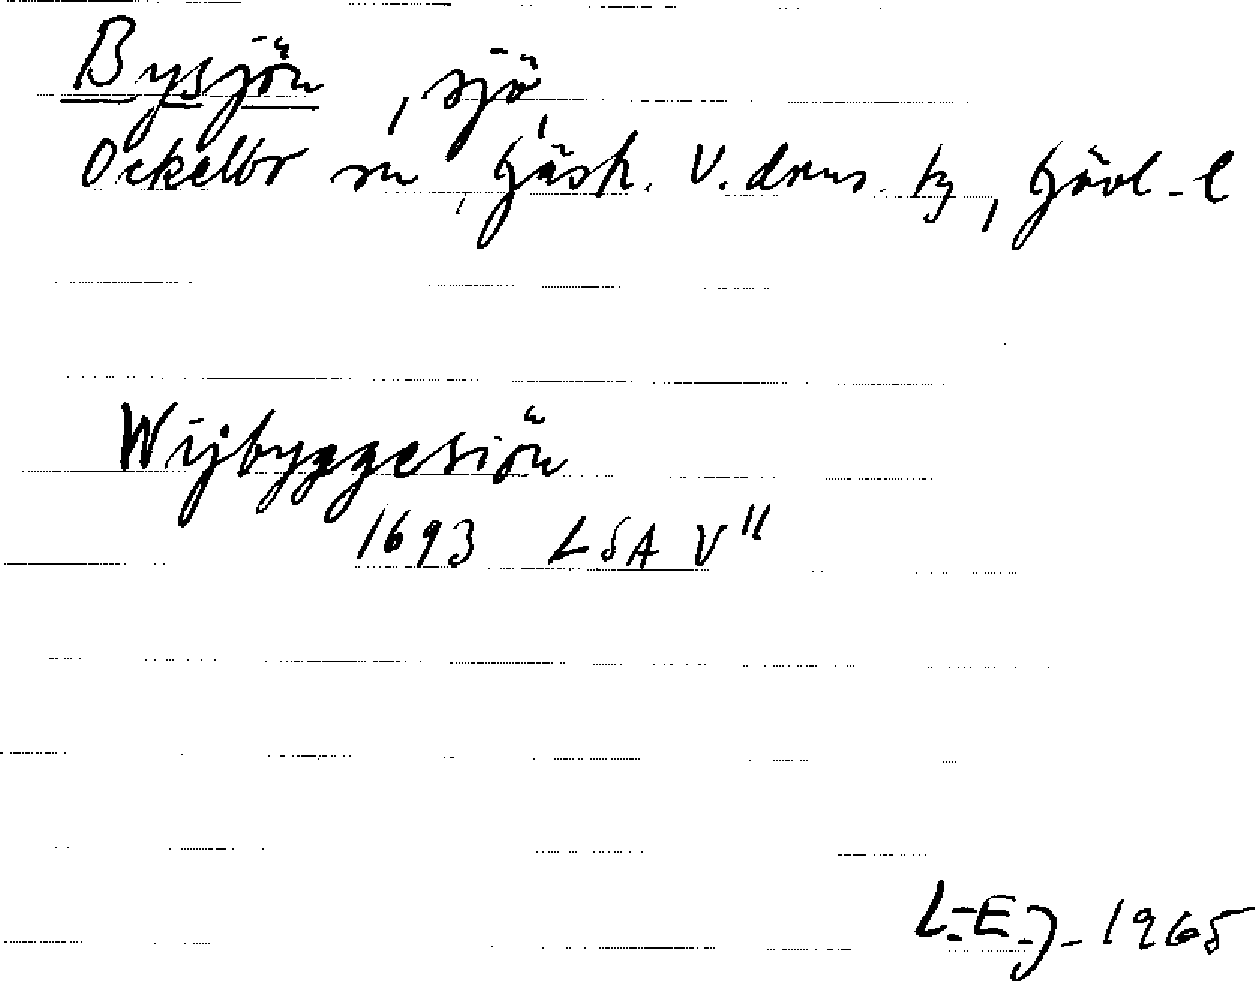 Bysjön, sjö,
Ockelbo sn, Gästr. V. doms. tg, Gävl. l
Wijbyggesiön
1693 LSA V 11
L.E.J. 1965